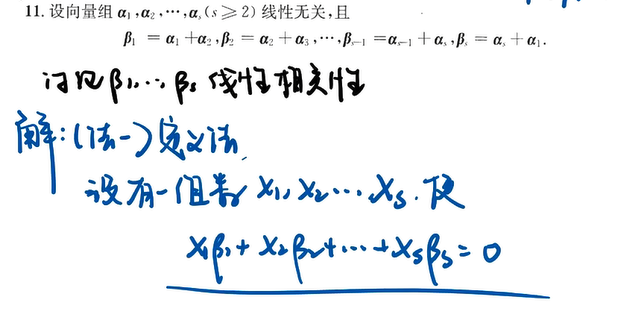 11. 设向量组 α₁,α₂,⋯,αₛ(s≥2) 线性无关,且
β₁ = α₁+α₂,β₂ = α₂+α₃,⋯,βₛ₋₁ =αₛ₋₁+αₛ,βₛ = αₛ+α₁.
讨论β₁,⋯,βₛ 线性相关性
解:(法一)定义法
设有一组数 x₁,x₂⋯,xₛ.使
x₁β₁+x₂β₂+⋯+xₛβₛ=0